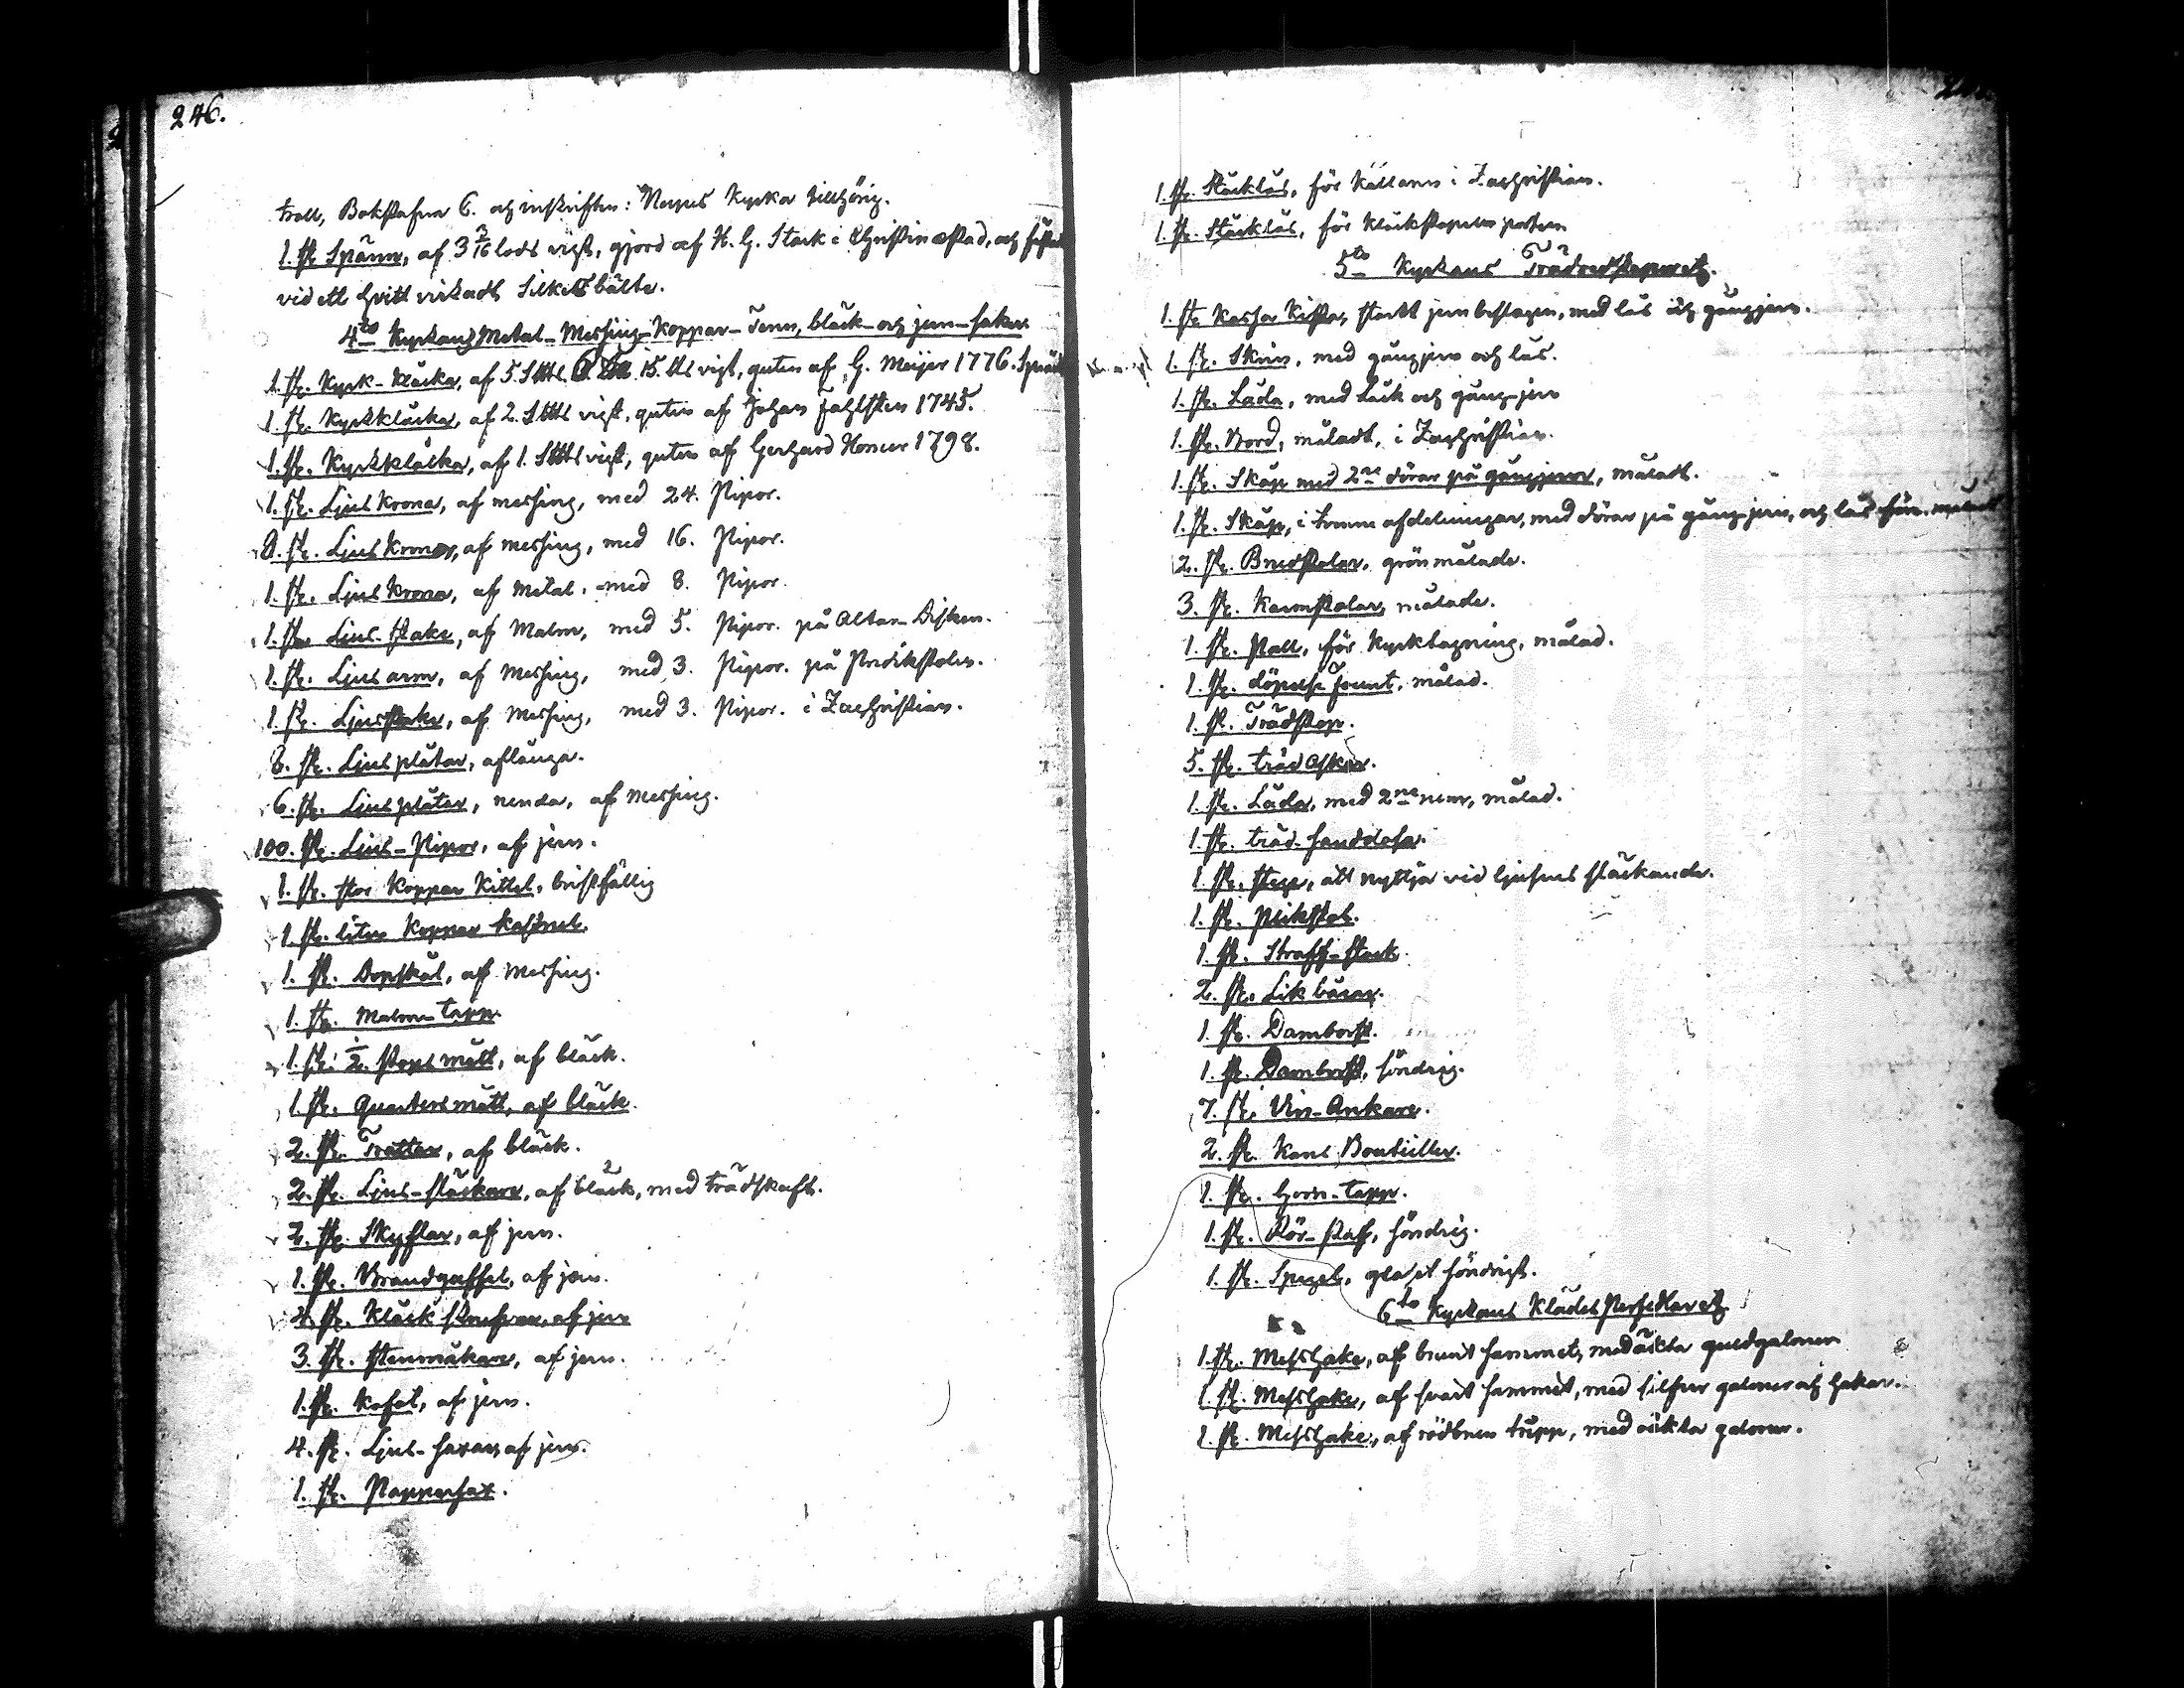 246.
trall, Bokstafven C. och inskriften: Nerpes Kyrka tillhörig.
1. st. Spänne, af 3 3/16 lods vigt, gjord af H. G. Stark i Christinæstad, och fästadt
vid ett hvitt virkadt Silkes bälte.
4to Kyrkans Metal-Messing-Koppar-Tenn, bläck- och jern-saker.
1. st. Kyrk-Klåcka, af 5. Skttl. 15. ttls vigt, guten af G. Meijer 1776.
1. st. Kyrkklåcka, af 2. Skttls vigt, guten af Johan Fahlsten 1745.
1. st. Kyrkklåcka, af 1. Skttls vigt, guten af Gerhard Horner 1798.
1. st. Ljus Krona, af messing, med 24. Pipor.
st. Ljus Kronor, af messing, med 16. Pipor.
1. st. Ljus Krona, af Metal, med 8. Pipor.
1. st. Ljus-stake, af Malm, med 5. Pipor. på Altar-Disken.
1. st. Ljus arm, af Messing, med 3. Pipor. på Predikstolen.
1. st. Ljusstake, af Messing, med 3. Pipor. i Zachristian.
8. st. Ljus plåtar, aflånga.
6. st. Ljus plåtar, runda, af Messing.
100. st. Ljus-Pipor, af jern.
1. st. stor Koppar Kittel, bristfällig
1. st. liten Koppar kastrul.
1. st. Dopskål, af Messing.
1. st. Malm-tapp.
1. st. 1/2. stops mått, af bläck.
1. st. Quarters mått, af bläck.
2. st. Trattar, af bläck.
2. st. Ljus-släckare, af bläck, med trädskaft.
2. st. Skyflar, af jern.
1. st. Brandgaffel, af jern.
st. Klåck af jern
3. st. stenmåkare, af jern.
1. st. Kofot, af jern.
4. st. Ljus-saxar, af jern.
1. st. Papperssax.
1. st. Stäcklås, för Källaren i Zachristian.
1. st. Stäcklås, för Klåckstapelns porten
5to Kyrkans Trädredskaper etc.
1. st. Kassa Kista, starkt jernbeslagen, med lås och gångjern.
1. st. Skrin, med gångjern och lås.
1. st. Låda, med Lock och gång-jern
1. st. Bord, måladt, i Zachristian.
1. st. Skåp med 2ne dörar på gångjern, måladt.
1. st. Skåp, i tvenne afdelningar, med dörar på gång-jern, och lås före, måladt
2. st. Bredstolar, grönmålade.
3. st. Karmstolar, målade.
1. st. Pall, för Kyrktagning, målad.
1. st. döpelse Fount, målad.
1. st. Trädstop.
5. st. träd askar.
1. st. Låda, med 2ne rum, målad.
1. st. träd-sanddosa.
1. st. stege, att nyttja vid ljusens släckande.
1. st. Plikstol.
1. st. Straff-stock.
2. st. Lik bårar.
1. st. Damborst.
1. st. Damborst, söndrig.
7. st. Vin-Ankare.
2. st. Kans Bouteiller.
1. st. Horn-tapp.
1. st. Rör-staf, söndrig.
1. st. Spegel, glaset söndrigt.
6to Kyrkans Klädes Persedlar etc
1. st. Messhake, af brunt sammet, med äckta guldgaloner
1. st. Messhake, af svart sammet, med silfver galoner och hakar.
1. st. Messhake, af rödbrun tripp, med äckta galoner.